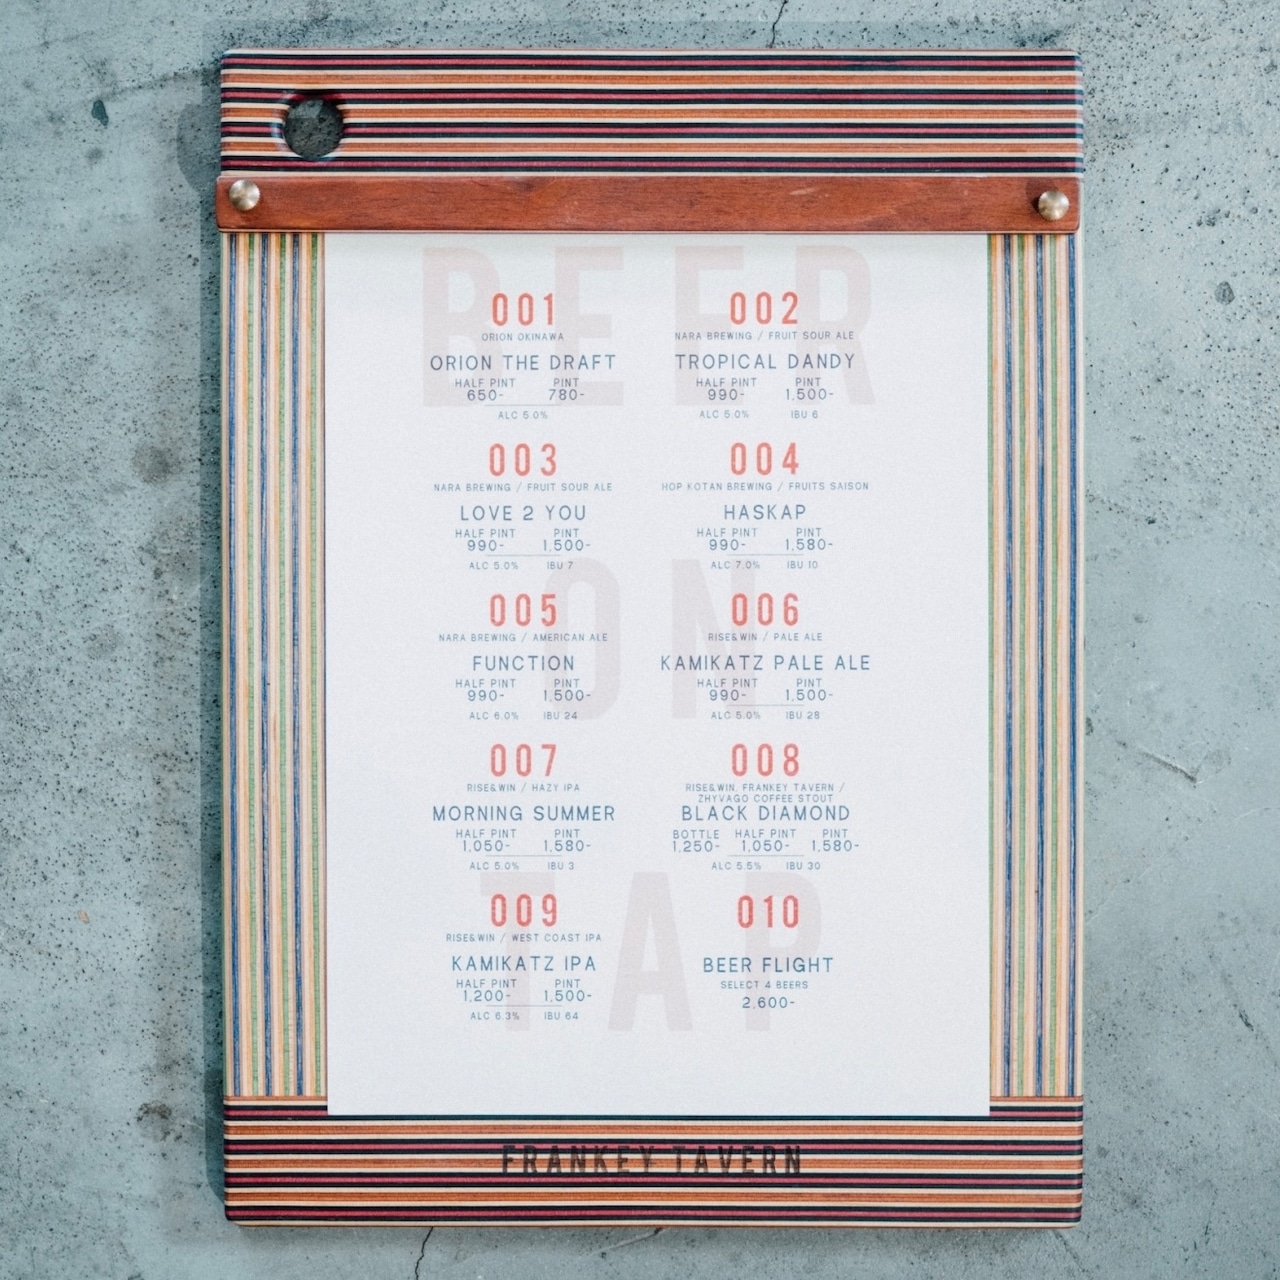 BEER
ON
TAP
001
ORION OKINAWA
ORION THE DRAFT
HALF PINT PINT
650- 780-
ALC 5.0%
002
NARA BREWING / FRUIT SOUR ALE
TROPICAL DANDY
HALF PINT PINT
990- 1,500-
ALC 5.0% IBU 6
003
NARA BREWING / FRUIT SOUR ALE
LOVE 2 YOU
HALF PINT PINT
990- 1,500-
ALC 5.0% IBU 7
004
HOP KOTAN BREWING / FRUITS SAISON
HASKAP
HALF PINT PINT
990- 1,580-
ALC 7.0% IBU 10
005
NARA BREWING / AMERICAN ALE
FUNCTION
HALF PINT PINT
990- 1,500-
ALC 6.0% IBU 24
006
RISE&WIN / PALE ALE
KAMIKATZ PALE ALE
HALF PINT PINT
990- 1,500-
ALC 5.0% IBU 28
007
RISE&WIN / HAZY IPA
MORNING SUMMER
HALF PINT PINT
1,050- 1,580-
ALC 5.0% IBU 3
008
RISE&WIN, FRANKEY TAVERN /
ZHYVAGO COFFEE STOUT
BLACK DIAMOND
BOTTLE HALF PINT PINT
1,250- 1,050- 1,580-
ALC 5.5% IBU 30
009
RISE&WIN / WEST COAST IPA
KAMIKATZ IPA
HALF PINT PINT
1,200- 1,500-
ALC 6.3% IBU 64
010
BEER FLIGHT
SELECT 4 BEERS
2,600-
FRANKEY TAVERN